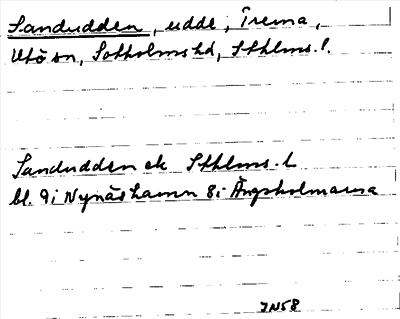 Sandudden, udde, Trema,
Utö sn, Sotholms hd, Sthlms l.
Sandudden ek Sthlms l
bl. 9i Nynäshamn 8i Ängsholmarna
JN58